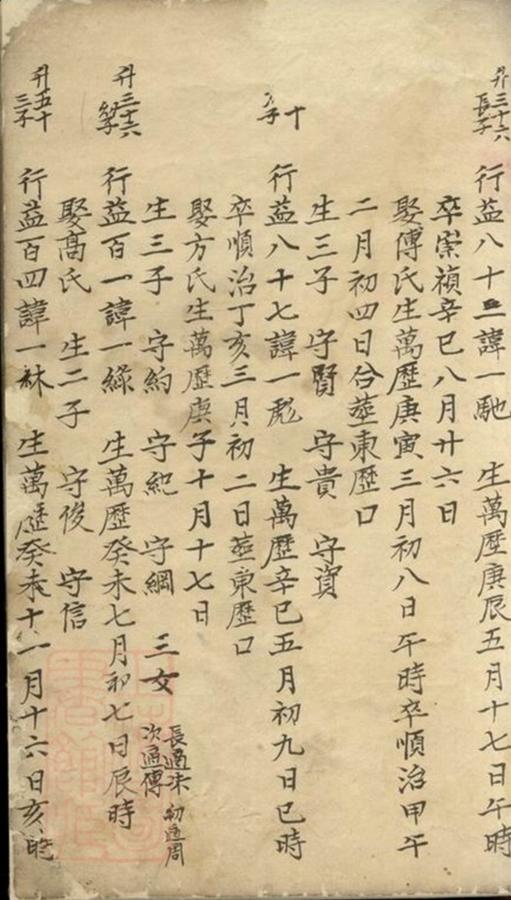 升三十六
長子
行益八十二諱一馳 生萬歷庚辰五月十七日午時
卒崇禎辛巳八月廿六日
娶傅氏生萬歷庚寅三月初八日午時卒順治甲午
二月初四日合塟東歷口
生三子 守賢 守貴 守資
十
子
行益八十七諱一彪 生萬歷辛巳五月初九日巳時
卒順治丁亥三月初二日塟東歷口
娶方氏生萬歷庚子十月十七日
生三子 守約 守紀 守綱 三女 長適 次適傅 幼適周
升三十六
行益百一諱一綠 生萬歷癸未七月初七日辰時
娶高氏 生二子 守俊 守信
升五十
三子
行益百四諱一 生萬歷癸未十一月十六日亥時